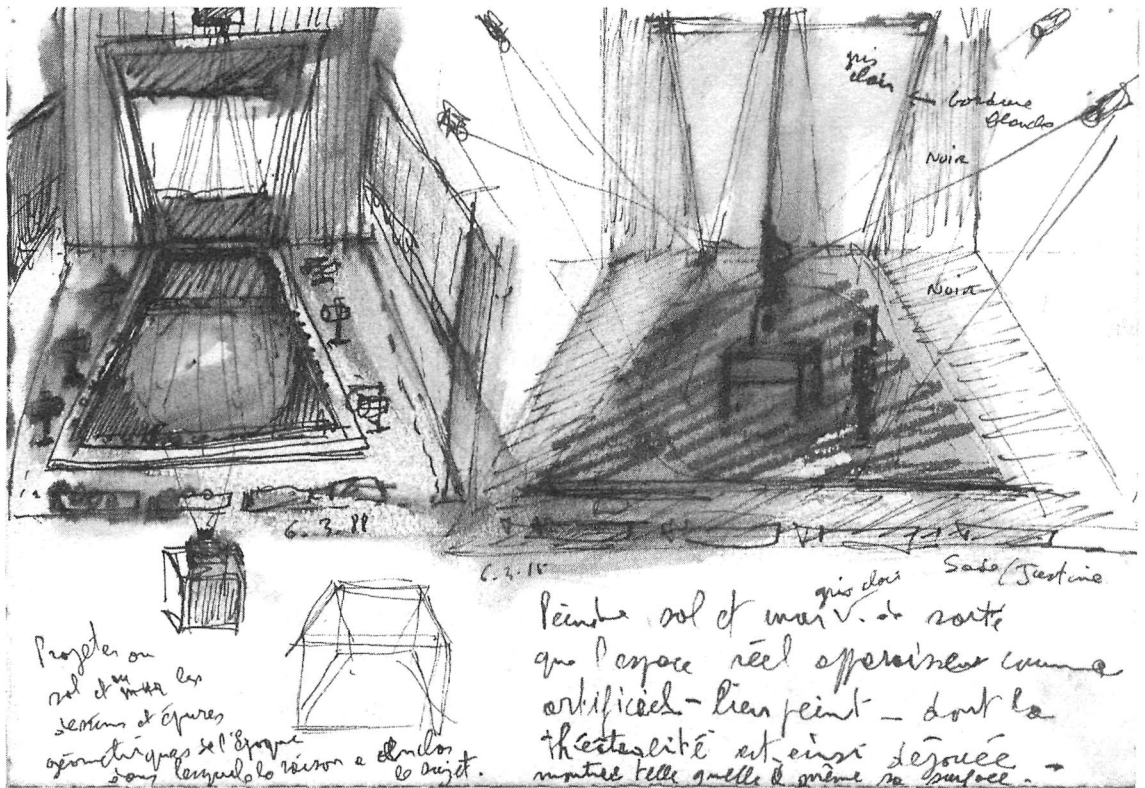 gris
clair
← bordure
blanche
NOIR
NOIR
6.3.88
6.3.88
Sade/Justine
Projeter au
sol et au mur les
dessins et épures
géométriques de l'époque
dans lesquels la raison a enclos
le sujet.
gris clair
Peindre sol et mur V. de sorte
que l'espace réel apparaisse comme
artificiel - lieu peint - dont la
théâtralité est ainsi déjouée
montrée telle quelle à même sa surface. -